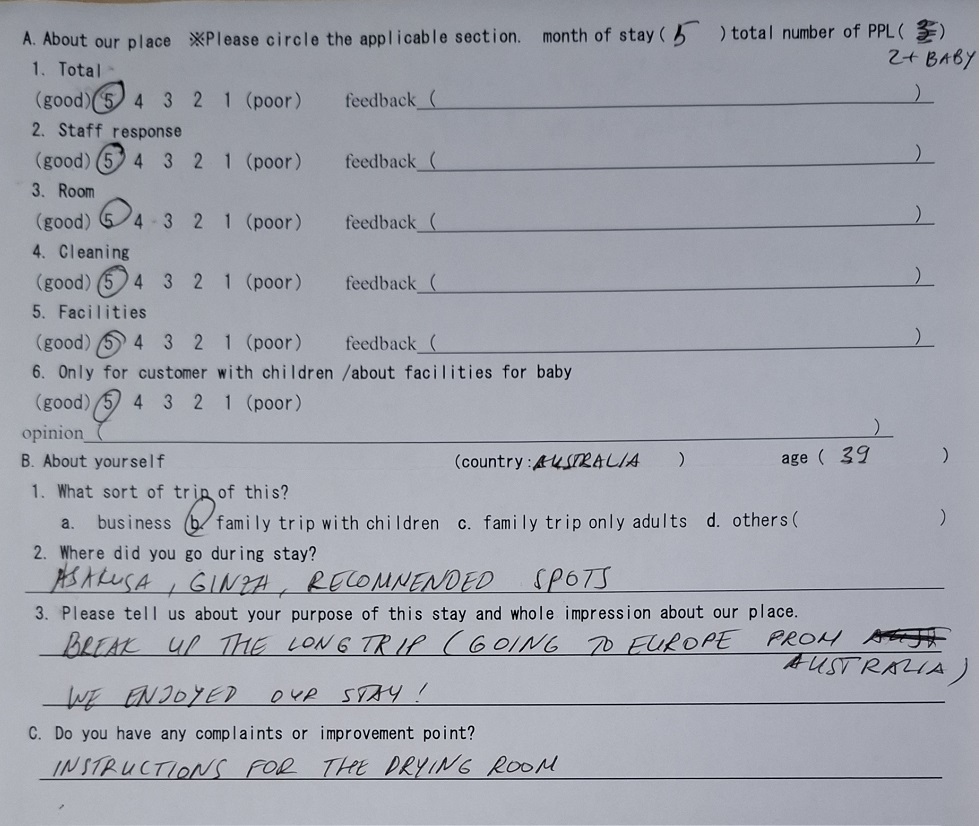 A. About our place ※Please circle the applicable section. month of stay ( 5 ) total number of PPL ( )
2 + BABY
1. Total
(good) 5 4 3 2 1 (poor) feedback ( )
2. Staff response
(good) 5 4 3 2 1 (poor) feedback ( )
3. Room
(good) 5 4 3 2 1 (poor) feedback ( )
4. Cleaning
(good) 5 4 3 2 1 (poor) feedback ( )
5. Facilities
(good) 5 4 3 2 1 (poor) feedback ( )
6. Only for customer with children /about facilities for baby
(good) 5 4 3 2 1 (poor)
opinion ( )
B. About yourself (country: AUSTRALIA ) age ( 39 )
1. What sort of trip of this?
a. business b. family trip with children c. family trip only adults d. others ( )
2. Where did you go during stay?
ASAKUSA, GINZA, RECOMNENDED SPOTS
3. Please tell us about your purpose of this stay and whole impression about our place.
BREAK UP THE LONG TRIP (GOING TO EUROPE FROM
AUSTRALIA)
WE ENJOYED OUR STAY!
C. Do you have any complaints or improvement point?
INSTRUCTIONS FOR THE DRYING ROOM